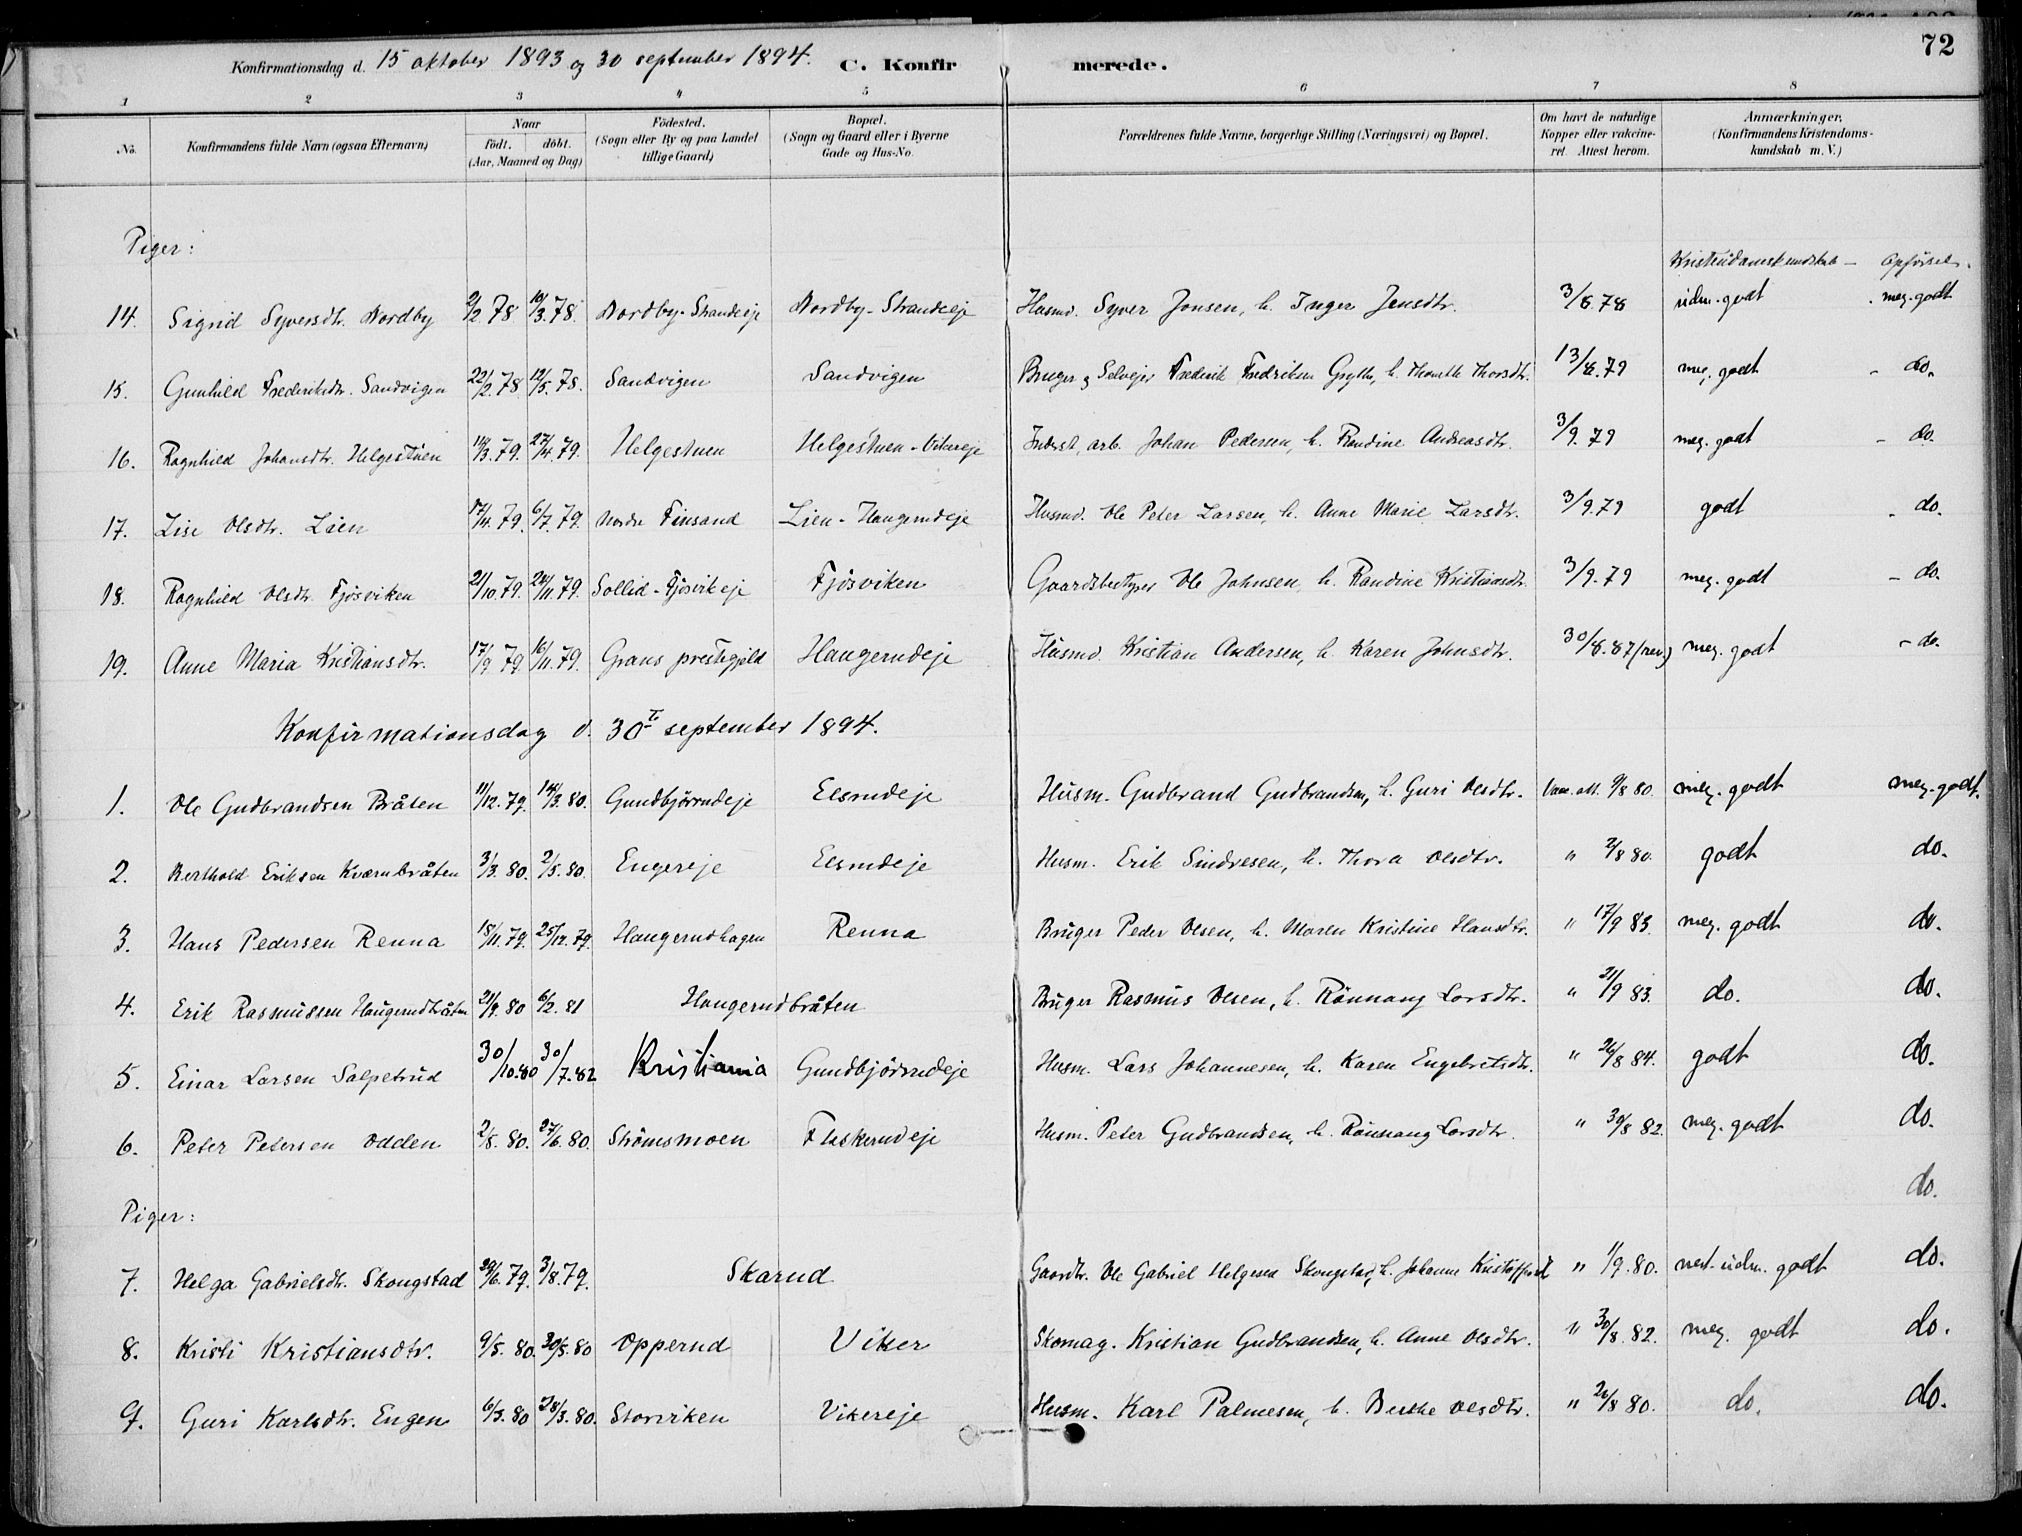 72
Konfirmationsdag d. 15 oktober 1893 og 30 september 1894. C. Konfirmerede.
1 2 3 4 5 6 7 8
No. Konfirmandens fulde Navn (ogsaa Efternavn) Naar født. døbt. (Aar, Maaned og Dag) Fødested. (Sogn eller By og paa Landet tillige Gaard) Bopæl. (Sogn og Gaard eller i Byerne Gade og Hus-No. Forældrenes fulde Navne, borgerlige Stilling (Næringsvei) og Bopæl. Om havt de naturlige Kopper eller vakcineret. Attest herom. Anmærkninger. (Konfirmandens Kristendomskundskab m. V.)
Piger:
Kristendomskundskab - Opførsel.
14. Sigrid Syversdtr. Nordby 2/2 78 10/3.78. Nordby-Strandeje Nordby-Strandeje Husmd. Syver Jonsen, h. Inger Jensdtr. 3/8.78 udm. godt . meg. godt
15. Gunhild Frederiksdtr. Sandvigen 22/2.78 12/5.78. Sandvigen Sandvigen Bruger og Selvejer Frederik Fredriksen h. Thorsdtr. 13/8.79 meg. godt - do.
16. Ragnhild Johansdtr. Helgestuen 14/3.79. 27/4.79. Helgestuen Helgestuen-Vikereje Inderst, arb. Johan Pedersen, h. Randine Andreasdtr. 3/9.79 meg. godt - do.
17. Lise Olsdtr. Lien 17/4.79. 6/7.79. Nordre Finsand Lien-Haugerudeje Husmd. Ole Peter Larsen, h. Anne Marie Larsdtr. 3/9.79 godt - do.
18. Ragnhild Olsdtr. Fjøsviken 21/10.79. 24/11.79. Sollid-Fjøsvikeje Fjøsviken Gaardsbestyrer Ole Johnsen, h. Randine Kristiansdtr. 3/9.79 meg. godt - do.
19. Anne Maria Kristiansdtr. 17/9 79 16/11.79. Grans prestegjeld Haugerudeje Husmd. Kristian Andersen, h. Karen Johnsdtr. 30/8.87 (rev.) meg. godt - do.
Konfirmationsdag d. 30te september 1894.
1. Ole Gudbrandsen Bråten 11/12.79. 14/3.80. Gundbjørrudeje Elsrudeje Husm. Gudbrand Gudbrandsen, h. Guri Olsdtr. Vac. att. 9/8 80. meg. godt meg. godt.
2. Berthold Eriksen Kværnbråten 3/3.80. 2/5.80. Engereje Elsrudeje Husm. Erik Sindresen, h. Thora Olsdtr. " 2/8 80. godt do.
3. Hans Pedersen Renna 18/11.79. 25/12.79. Haugerudhagen Renna Bruger Peder Olsen, h. Maren Kristine Hansdtr. " 17/9 83. meg. godt do.
4. Erik Rasmussen Haugerudbråten 21/9.80 6/2.81 Haugerudbråten Bruger Rasmus Olsen, h. Rönnaug Larsdtr. " 21/9 83. do. do.
5. Einar Larsen Salpetrud 30/10.80 30/7.82 Kristiania Gundbjörrudeje Husm. Lars Johannesen, h. Karen Engebretsdtr. " 26/8 84. godt do.
6. Peter Petersen Odden 2/5.80. 27/6.80. Strömsmoen Flaskerudeje Husm. Peter Gudbrandsen, h. Rönnaug Larsdtr. " 30/8 82. meg. godt do.
do.
Piger:
7. Helga Gabrielsdtr. Skougstad 29/6.79. 3/8.79. Skarud Gaardbr. Ole Gabriel Helgesen Skougstad, h. Johanne " 1/9.80. nest udm. godt do.
8. Kristi Kristiansdtr. 9/5.80. 30/5.80 Opperud Viker Skomag. Kristian Gudbrandsen, h. Anne Olsdtr. " 30/8.82. meg. godt do.
9. Guri Karlsdtr. Engen 6/3.80 28/3.80. Storviken Vikereje Husm. Karl Palmesen, h. Berthe Olsdtr. " 26/8 80. do. do.